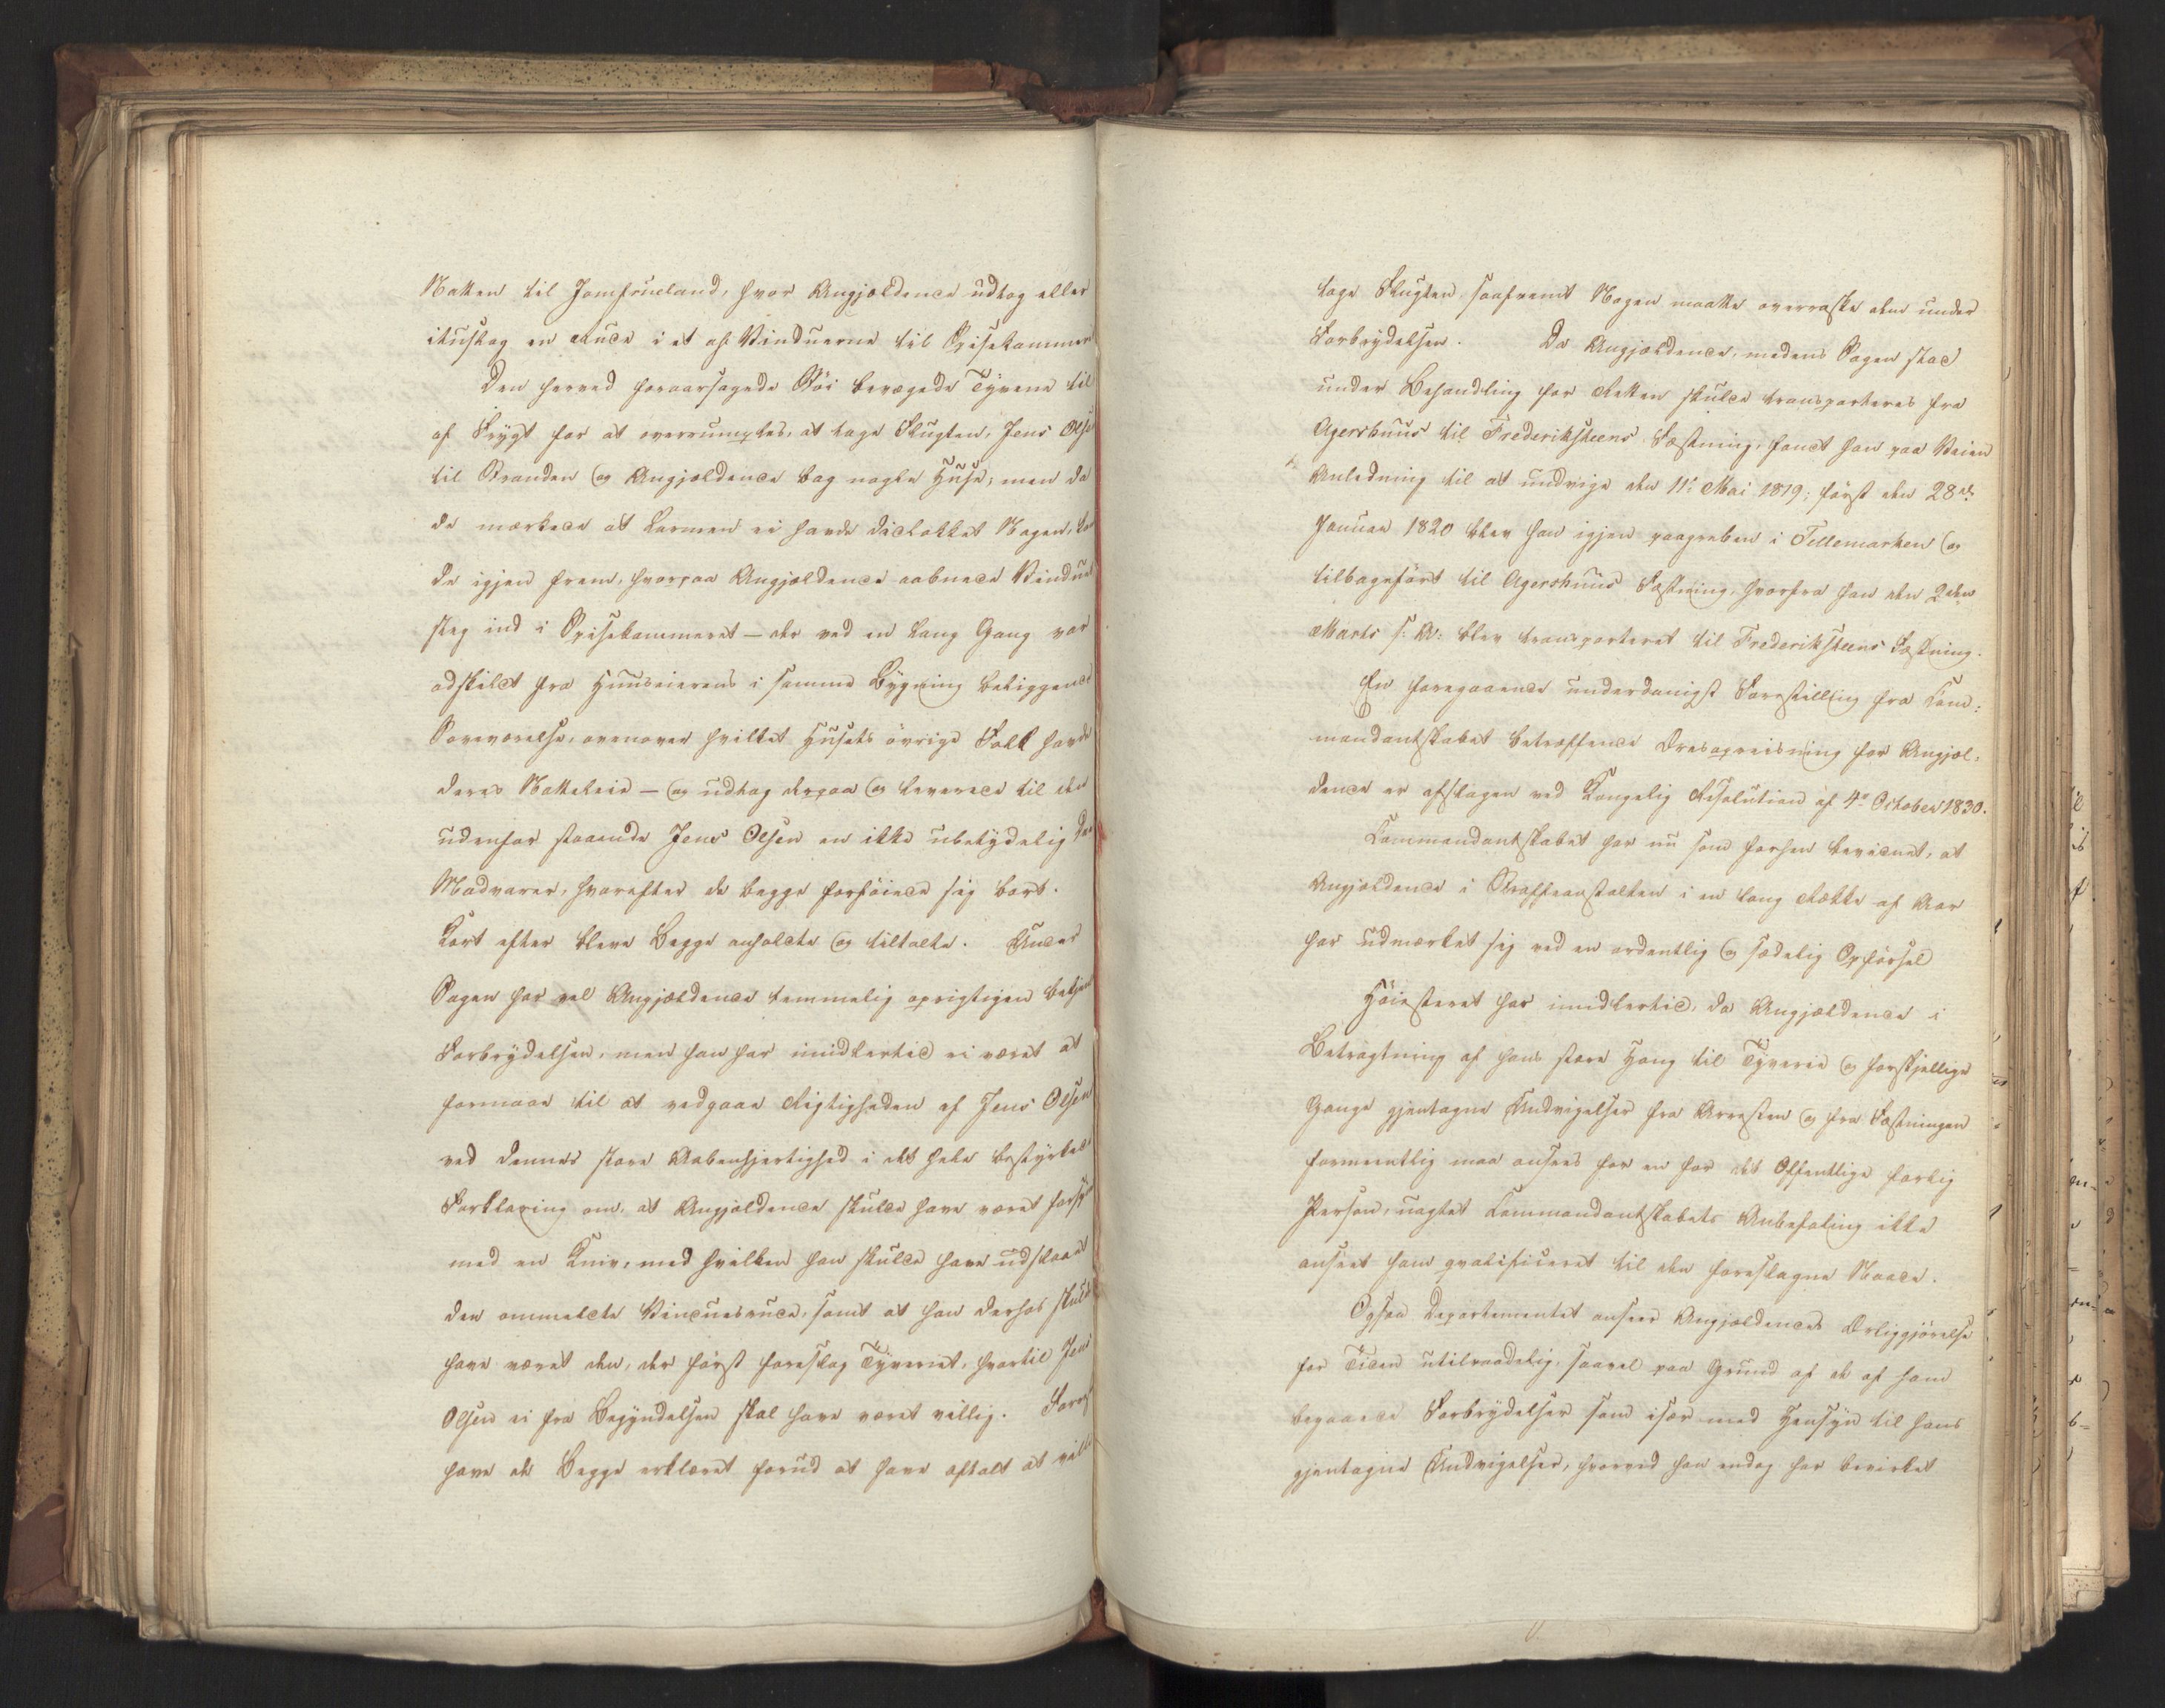 Natten til Jomfrueland, hvor Angjældende udtog eller
ituslog en Rude i et af Vinduerne til Spisekammer
Den herved foraarsagede Støi bevægede Tyvene til
af Frygt for at overrumples, at tage Flugten, Jens Olse
til Stranden og Angjældende bag nogle Huse; men da
de mærkede at Larmen ei havde dielokket Nogen, kom
de igjen frem, hvorpaa Angjældende aabnede Vindue
steg ind i Spisekammeret – der ved en lang Gang var
adskildt fra Huuseierens i samme Bygning beliggende
Soveværelse, ovenover hvilket Husets øvrige Folk havde
deres Natteleie – og udtog derpaa og leverede til den
udenfor staaende Jens Olsen en ikke ubetydelig Deel
Madvarer, hvorefter de begge forføiede sig bort.
Kort efter bleve Begge anholdte og tiltalte. Under
Sagen har vel Angjældende temmelig oprigtigen bekjend
Forbrydelsen, men han har imidlertid ei været at
formaae til at vedgaae Rigtigheden af Jens Olsen
ved dennes store Aabenhjertighed i det hele bestyrkede
Forklaring om, at Angjældende skulde have været forsyn
med en Kniv, med hvilken han skulde have udskaaet
den ommeldte Vinduesrude, samt at han derhos skulde
have været den, der først foreslog Tyveriet, hvortil Jens
Olsen ei fra Begyndelsen skal have været villig.
have de Begge erklæret forud at have aftalt at ville
tage Flugten, saafremt Nogen maatte overraske dem under
Forbrydelsen. Da Angjældende, medens Sagen stod
under Behandling for Retten skulde transporteres fra
Agershuus til Frederiksteens Fæstning, fandt han paa Veien
Anledning til at undvige den 11te Mai 1819; først den 28de
Januar 1820 blev han igjen paagreben i Tellemarken og
tilbageført til Agershuus Fæstning, hvorfra han den 2den
Marts s: A: blev transporteret til Frederiksteens Fæstning.
En foregaaende underdanigst Forestilling fra Com:
mandantskabet betræffende Oreisning for Angjæl,
dende er afslagen ved Kongelig Resolution af 4de October 1830.
Commandantskabet har nu som forhen bevidnet, at
Angjældende i Straffeanstalten i en lang Række af Aar
har udmærket sig ved en ordentlig og sædelig Opførsel
Høiesteret har imidlertid, da Angjældende i
Betragtning af hans store Hang til Tyverie og forskjellige
Gange gjentagne Undvigelser fra Arresten og fra Fæstningen
formeentlig maa ansees for en for det Offentlige farlig
Person, uagtet Commandantskabets Anbefaling ikke
anseet ham qvalificeret til den foreslagne Naade.
Ogsaa Departementet anseer Angjældendes Ørliggjørelse
for Tiden utilraadelig, saavel paa Grund af de af ham
begaaede Forbrydelser som især med Hensyn til hans
gjentagne Undvigelser, hvorved han endog har bevirket